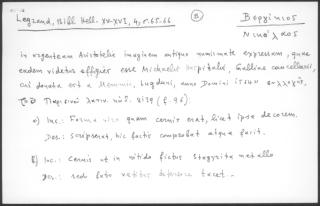 Legrand, Bibl. Hell. XV-XVI, 4, σ. 65-66
Β
Βεργίκιος
Νικόλαος
in argenteam Aristotelis imaginem antiquo numismate expressam, quae
eadem videtur effigies esse Michaelis Hospitalis, Galliae cancellarii,
cui donata est a Memmio, Lugduni, anno Domini
(f. 96)
a) Inc.: Forma viro quam cernis erat, licet ipse decorem.
Des.: scripserat, hic factis comprobat atque facit.
b) Inc.: Cernis ut in nitido fictus Stagyrita metallo
Des.: sed fato vetitus deference tacet.